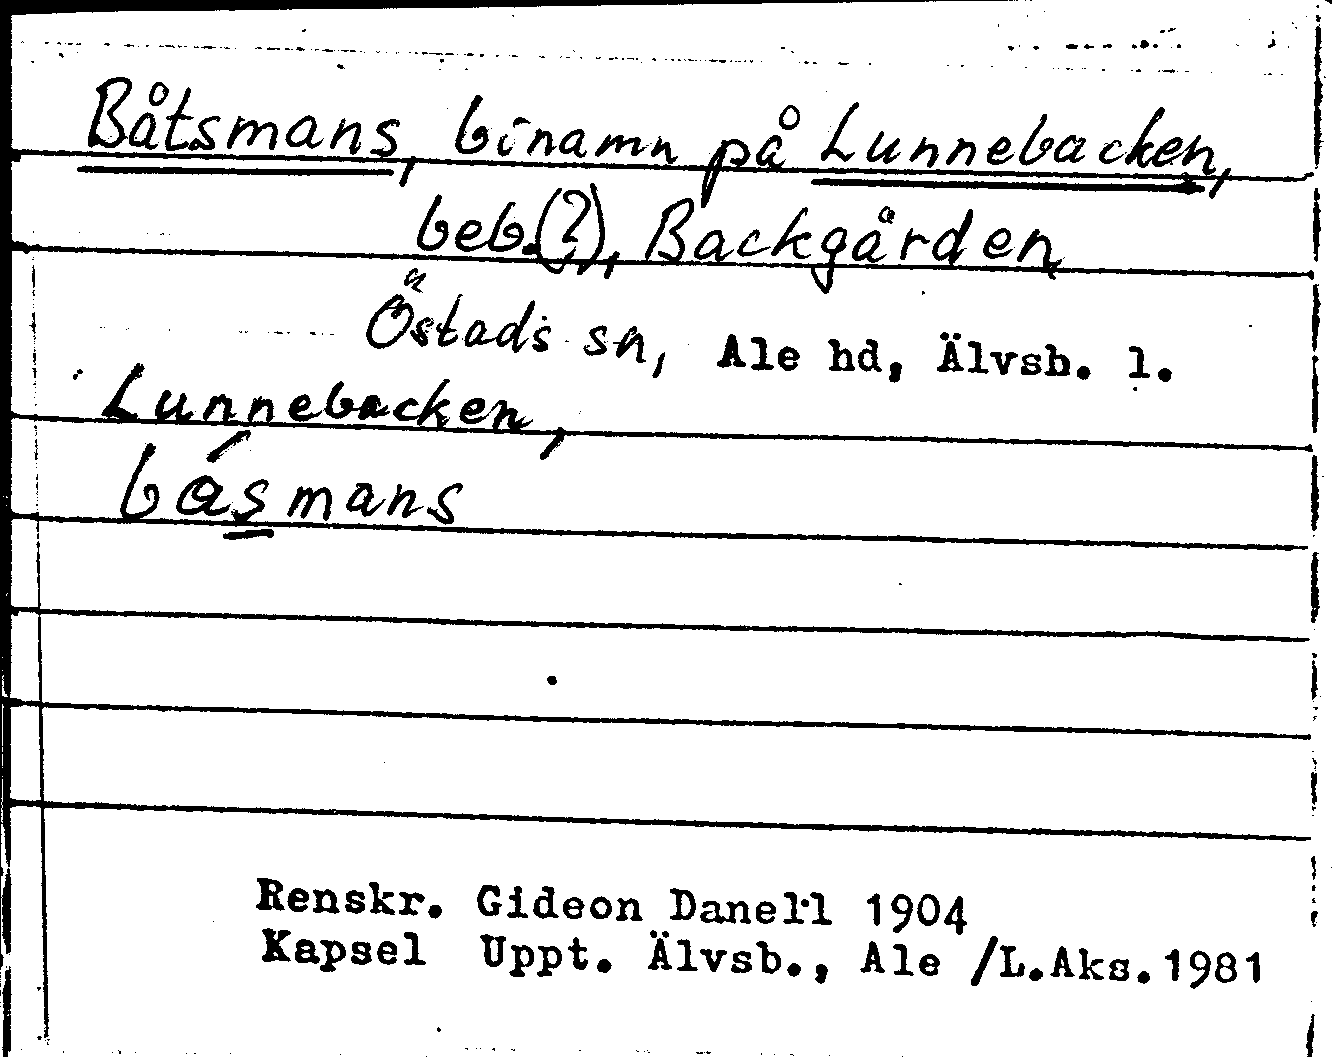 Båtsmans, binamn på Lunnebacken,
beb.(?), Backgården
Östads sn, Ale hd, Älvsb. l.
Lunnebacken,
básmans
Renskr. Gideon Danell 1904
Kapsel Uppt. Älvsb., Ale /L.Aks.1981